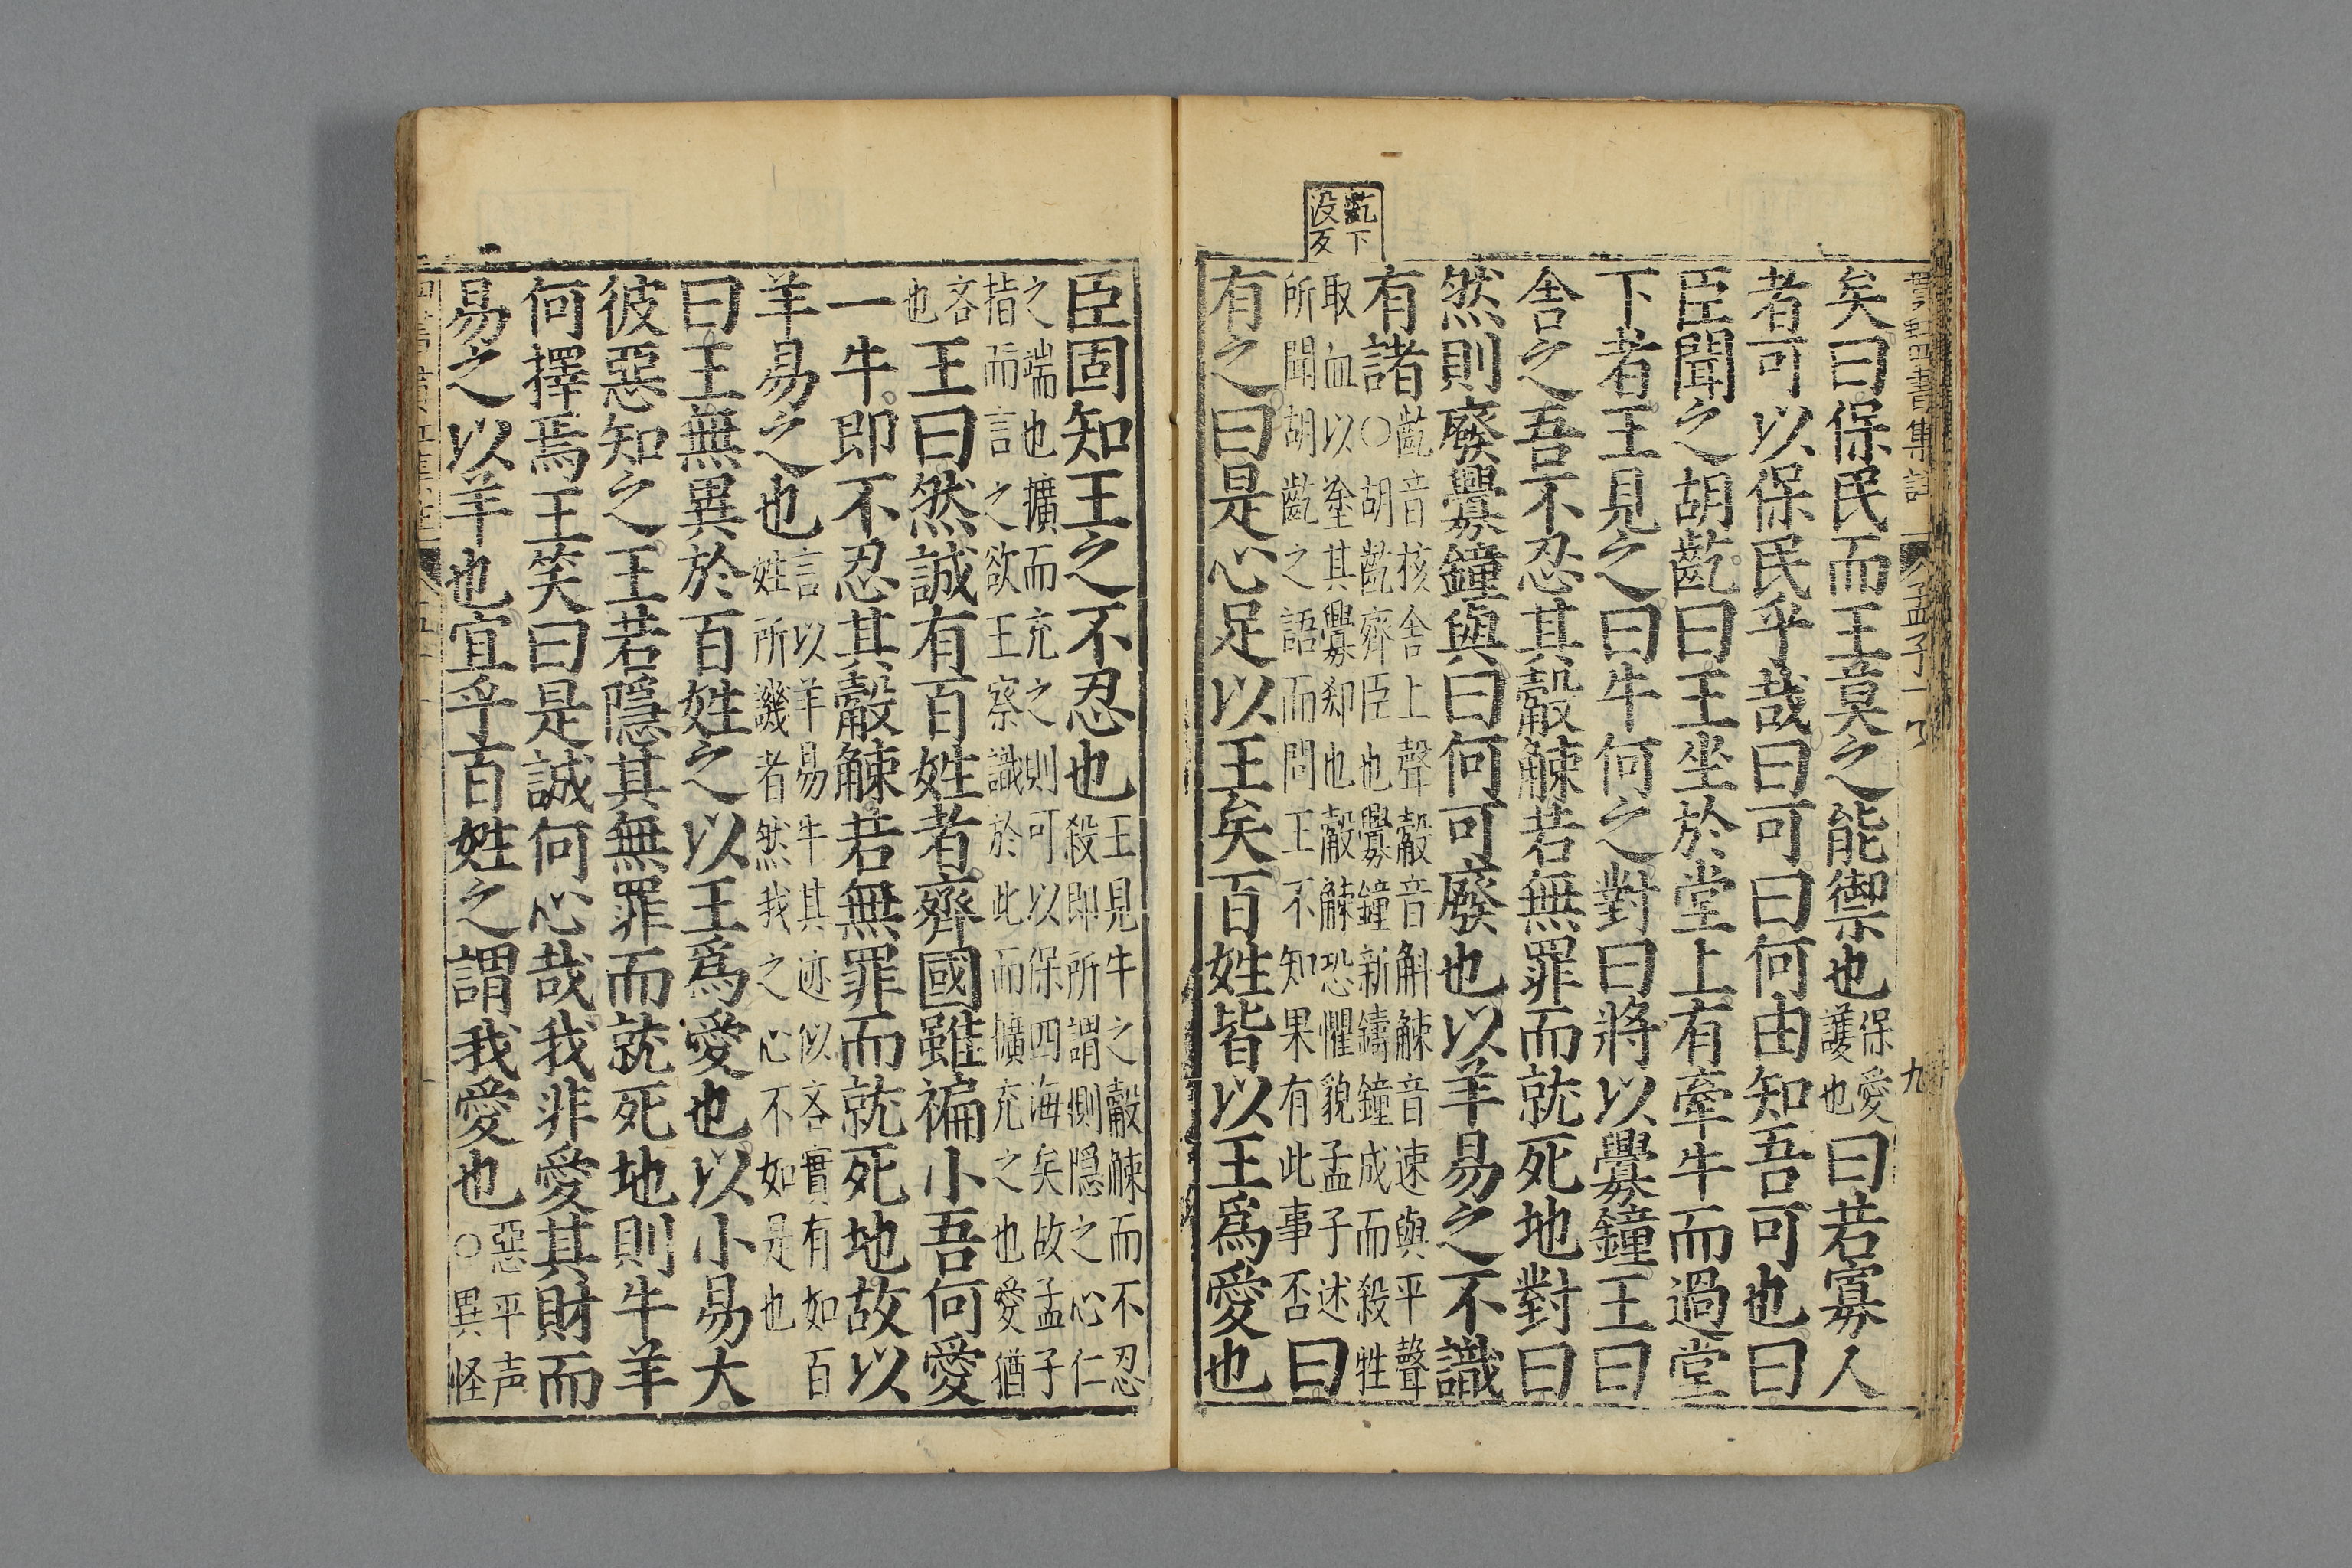 齕下
沒反
孟子
九
矣曰保民而王莫之能禦也保愛
護也曰若寡人
者可以保民乎哉曰可曰何由知吾可也曰
臣聞之胡齕曰王坐於堂上有牽牛而過堂
下者王見之曰牛何之對曰將以釁鐘王曰
舍之吾不忍其觳觫若無罪而就死地對曰
然則廢釁鐘與曰何可廢也以羊易之不識
有諸齕音核舍上聲觳音斛觫音速與平聲
○胡齕齊臣也釁鐘新鑄鐘成而殺牲
取血以塗其釁郤也觳觫恐懼貌孟子述
所聞胡齕之語而問王不知果有此事否曰
有之曰是心足以王矣百姓皆以王爲愛也
臣固知王之不忍也王見牛之觳觫而不忍
殺即所謂惻隱之心仁
之端也擴而充之則可以保四海矣故孟子
指而言之欲王察識於此而擴充之也愛猶
吝
也王曰然誠有百姓者齊國雖褊小吾何愛
一牛即不忍其觳觫若無罪而就死地故以
羊易之也言以羊易牛其迹似吝實有如百
姓所譏者然我之心不如是也
曰王無異於百姓之以王爲愛也以小易大
彼惡知之王若隱其無罪而就死地則牛羊
何擇焉王笑曰是誠何心哉我非愛其財而
易之以羊也宜乎百姓之謂我愛也惡平声
○異怪